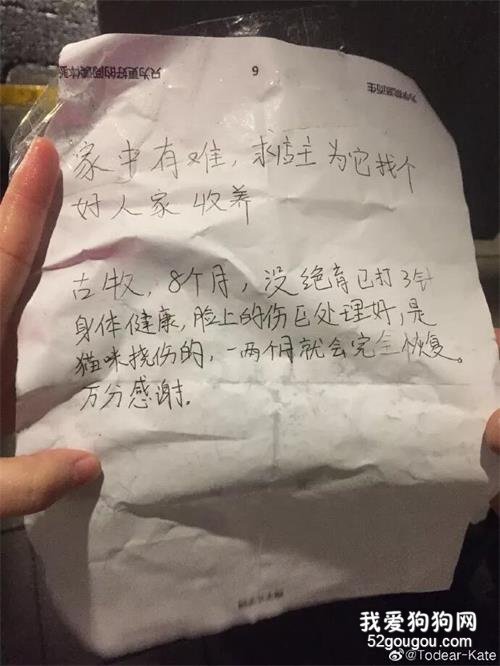 家中有难，求店主为它找个
好人家收养
古牧，8个月，没绝育已打3针
身体健康，脸上的伤已处理好，是
猫咪挠伤的，一两个月就会完全恢复。
万分感谢.
我爱狗狗网
52gougou.com
@Todear-Kate